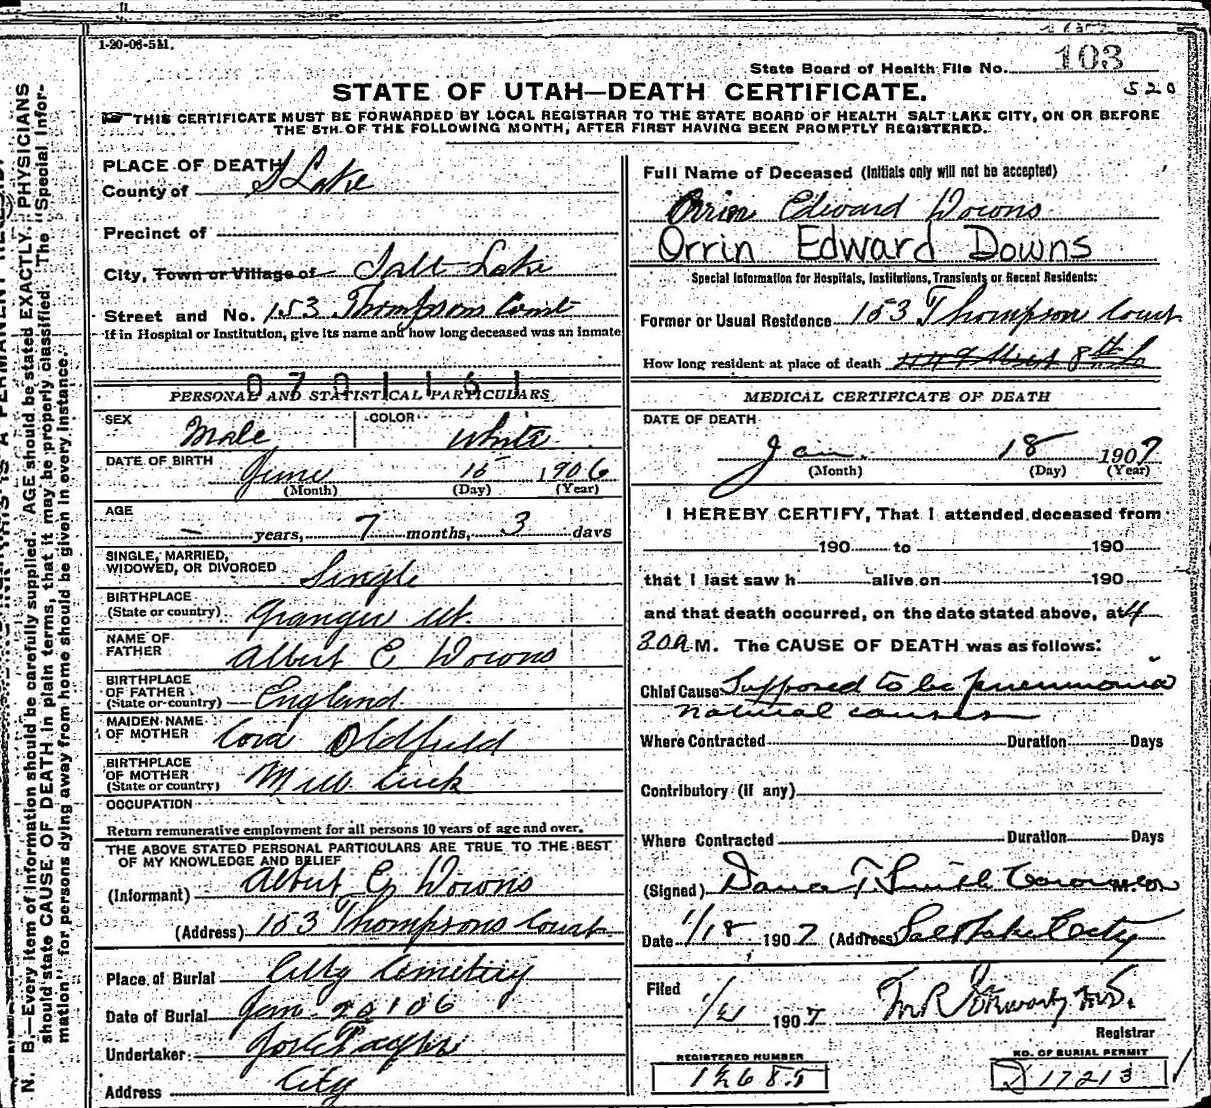 1-20-06-5M.
State Board of Health File No. 103
520
STATE OF UTAH—DEATH CERTIFICATE.
THIS CERTIFICATE MUST BE FORWARDED BY LOCAL REGISTRAR TO THE STATE BOARD OF HEALTH SALT LAKE CITY, ON OR BEFORE
THE 5TH OF THE FOLLOWING MONTH, AFTER FIRST HAVING BEEN PROMPTLY REGISTERED.
N. B.—Every item of information should be carefully supplied. AGE should be stated EXACTLY. PHYSICIANS
should state CAUSE OF DEATH in plain terms, that it may be properly classified. The "Special Infor-
mation" for persons dying away from home should be given in every instance.
PLACE OF DEATH
County of S Lake
Precinct of
City, Town or Village of Salt Lake
Street and No. 153 Thompsons Court
If in Hospital or Institution, give its name and how long deceased was an inmate
0701161
PERSONAL AND STATISTICAL PARTICULARS
SEX Male COLOR White
DATE OF BIRTH June 15 1906
(Month) (Day) (Year)
AGE
— years, 7 months, 3 days
SINGLE, MARRIED,
WIDOWED, OR DIVORCED Single
BIRTHPLACE
(State or country) Granger Ut.
NAME OF
FATHER Albert E Downs
BIRTHPLACE
OF FATHER
(State or country) England
MAIDEN NAME
OF MOTHER Cora Oldfield
BIRTHPLACE
OF MOTHER
(State or country) Mill Creek
OCCUPATION
Return remunerative employment for all persons 10 years of age and over.
THE ABOVE STATED PERSONAL PARTICULARS ARE TRUE TO THE BEST
OF MY KNOWLEDGE AND BELIEF
(Informant) Albert E Downs
(Address) 153 Thompsons Court
Place of Burial City Cemetery
Date of Burial Jan. 20 106
Undertaker
Address City
Full Name of Deceased (Initials only will not be accepted)
Orrin Edward Downs
Orrin Edward Downs
Special Information for Hospitals, Institutions, Transients or Recent Residents:
Former or Usual Residence 153 Thompson Court
How long resident at place of death
MEDICAL CERTIFICATE OF DEATH
DATE OF DEATH
Jan. 18 1907
(Month) (Day) (Year)
I HEREBY CERTIFY, That I attended deceased from
190 to 190
that I last saw h alive on 190
and that death occurred, on the date stated above, at 4
30 A M. The CAUSE OF DEATH was as follows:
Chief Cause Supposed to be pneumonia
natural causes
Where Contracted Duration Days
Contributory (if any)
Where Contracted Duration Days
(Signed) Dana T Smith Coroner
Date 1/18 1907 (Address) Salt Lake City
Filed
1907
Registrar
REGISTERED NUMBER
NO. OF BURIAL PERMIT
D 17213